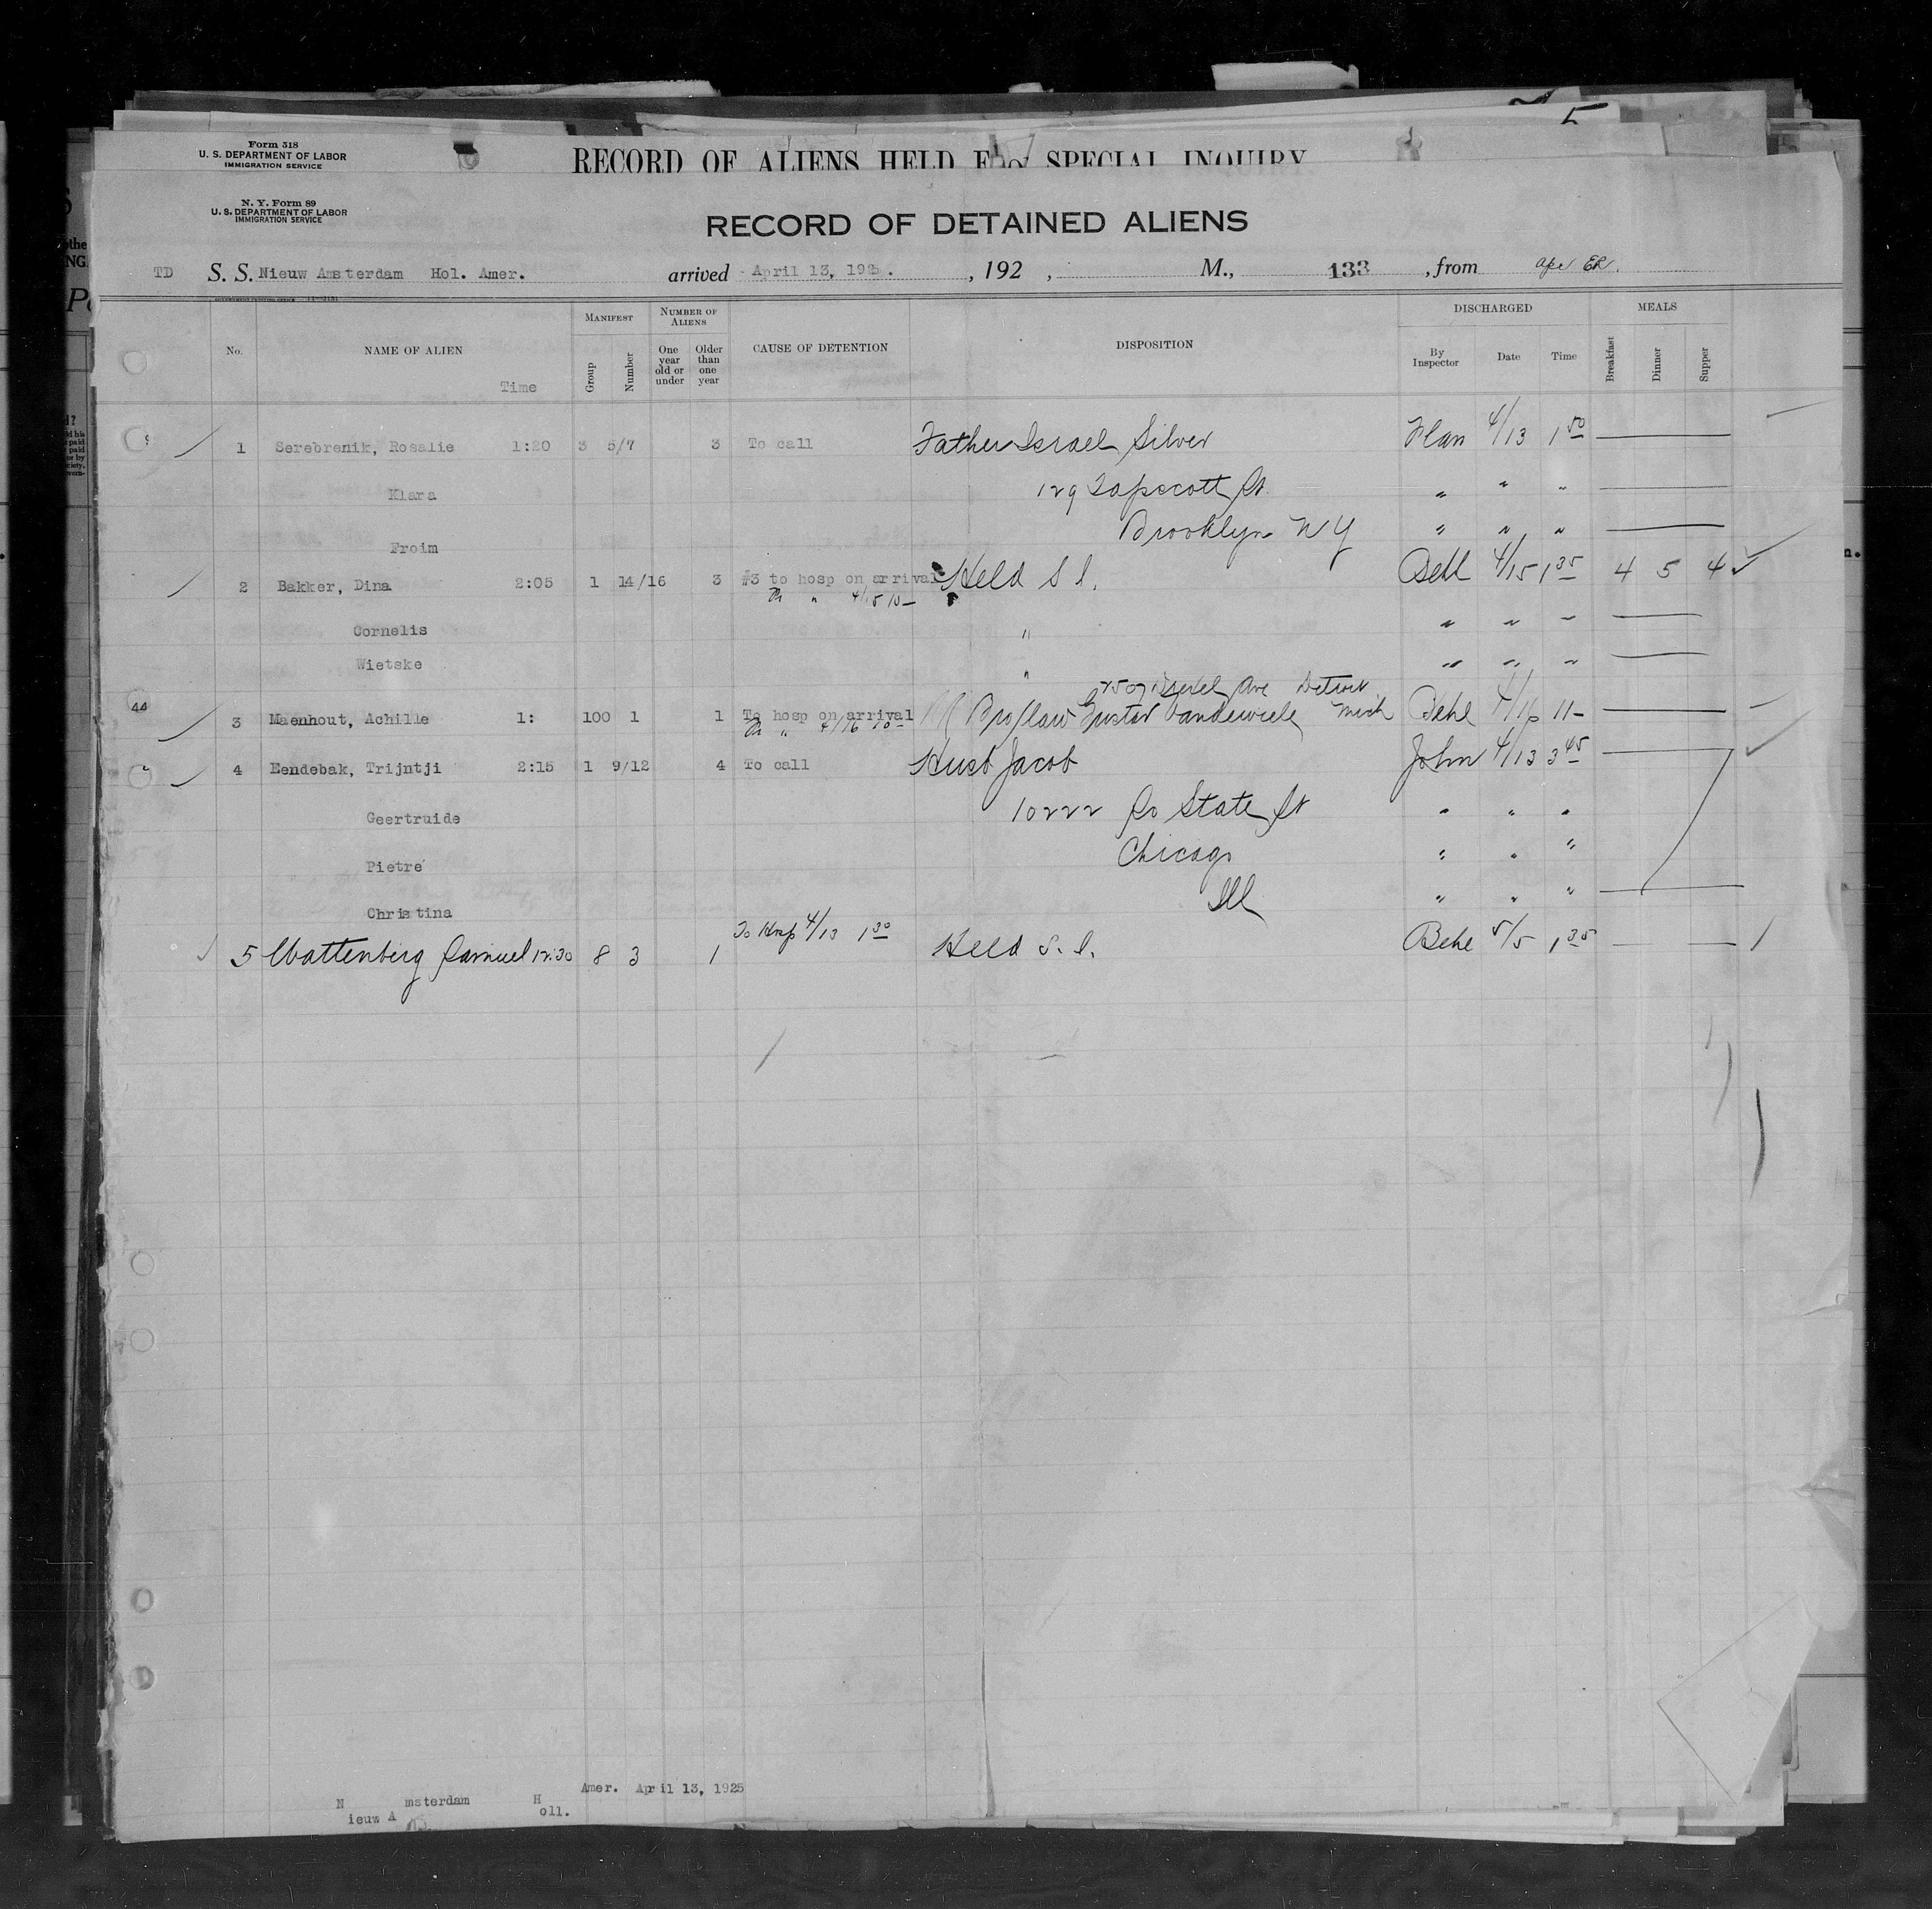 Form 518
U. S. DEPARTMENT OF LABOR
IMMIGRATION SERVICE
RECORD OF ALIENS HELD FOR SPECIAL INQUIRY
N. Y. Form 89
U. S. DEPARTMENT OF LABOR
IMMIGRATION SERVICE
RECORD OF DETAINED ALIENS
TD S. S. Nieuw Amsterdam Hol. Amer. arrived April 13, 1925. , 192 , M., 133 , from
No. NAME OF ALIEN Time MANIFEST Group Number NUMBER OF ALIENS One year old or under Older than one year CAUSE OF DETENTION DISPOSITION DISCHARGED By Inspector Date Time MEALS Breakfast Dinner Supper
1 Serebrenik, Rosalie 1:20 3 5/7 3 To call Father Israel Silver 4/13 1 50
Klara 129 Tapscott St " " "
Froim Brooklyn N Y " " "
2 Bakker, Dina 2:05 1 14/16 3 #3 to hosp on arrival Held S I. 4/15 1 35 4 5 4
" 4/15 10 -
Cornelis " " " "
Wietske " " " "
Ave Detroit
3 Maenhout, Achille 1: 100 1 1 To hosp on arrival Bro/law Gustav Vandewiele Mich Behl 4/16 11-
" 4/16 10 -
4 Eendebak, Trijntji 2:15 1 9/12 4 To call Husb Jacob John 4/13 3 45
Geertruide 10222 So State St " " "
Pietre Chicago " " "
Christina Ill " " "
5 Wattenberg Samuel 12:30 8 3 1 To Hosp 4/13 1 30 Held S. I. Behl 5/5 1 35
Amer. April 13, 1925
N msterdam H
ieuw A oll.